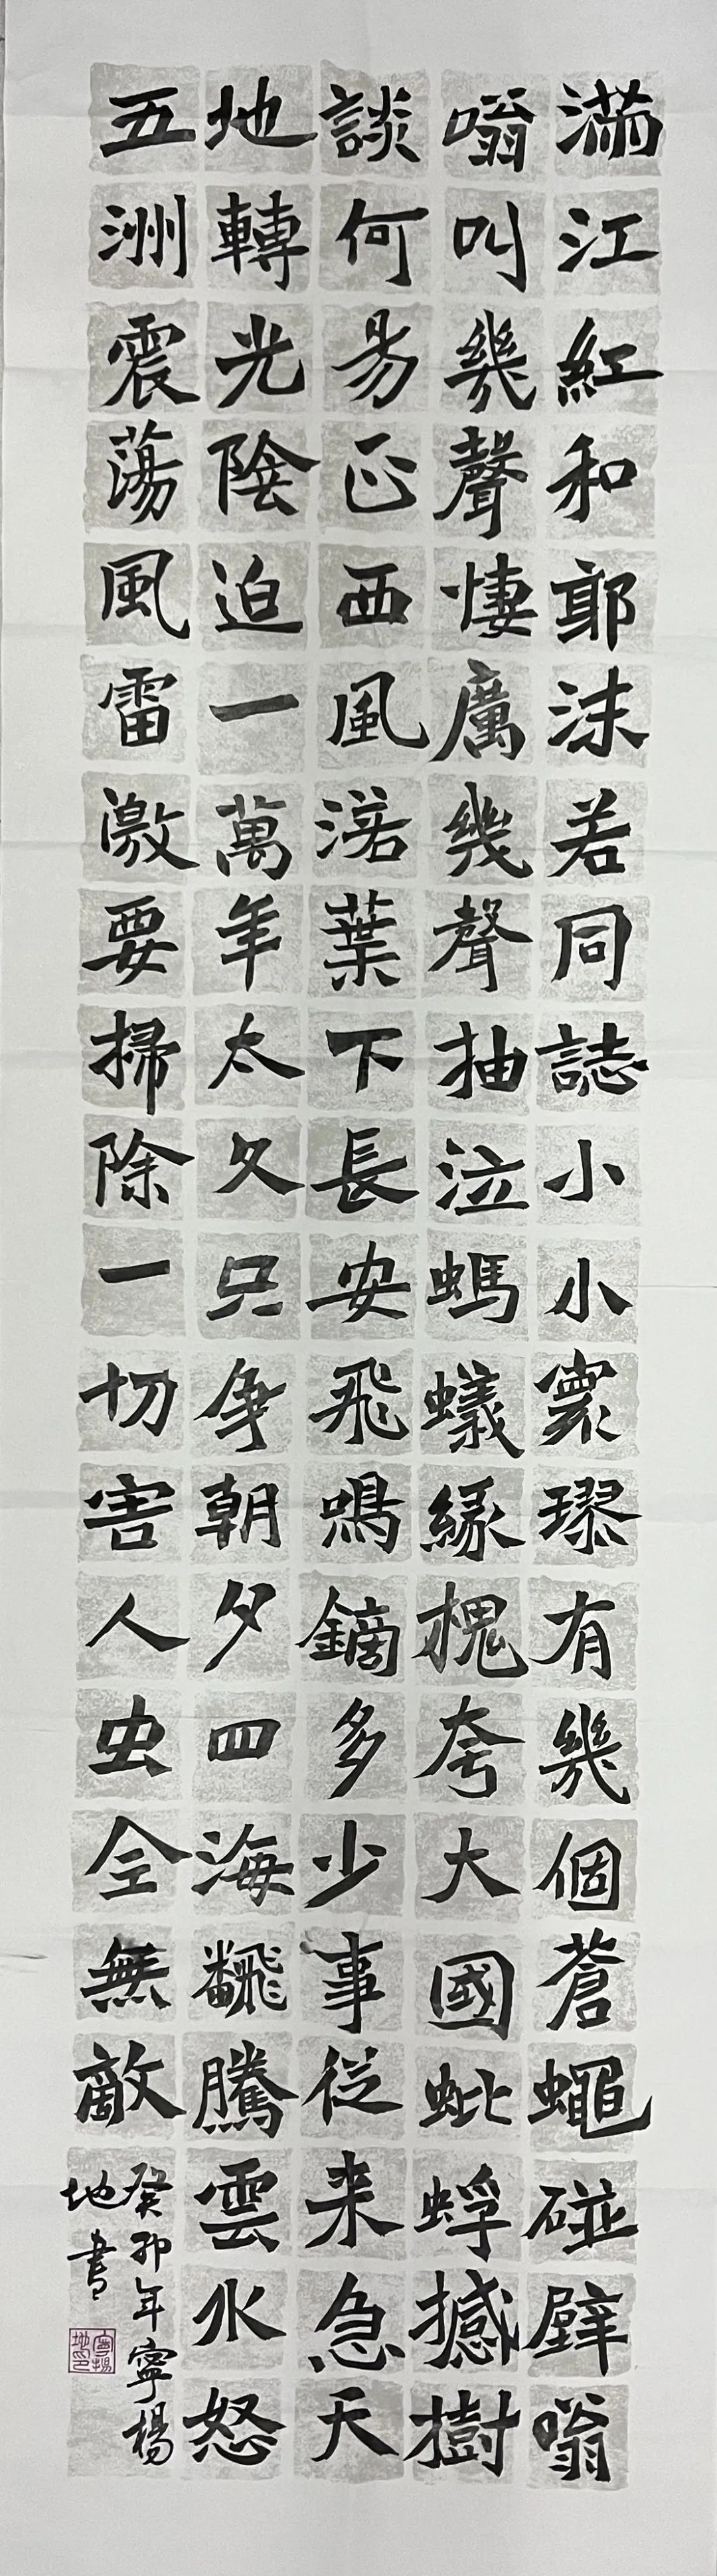 滿江紅和郭沫若同誌小小寰璆有幾個蒼蠅碰壁嗡
嗡叫幾聲悽厲幾聲抽泣螞蟻緣槐夸大國蚍蜉撼樹
談何易正西風渃葉下長安飛鳴鏑多少事從来急天
地轉光陰迫一萬年太久只争朝夕四海飜騰雲水怒
五洲震蕩風雷激要掃除一切害人虫全無敵
癸卯年寧楊
地書
寧楊
地印